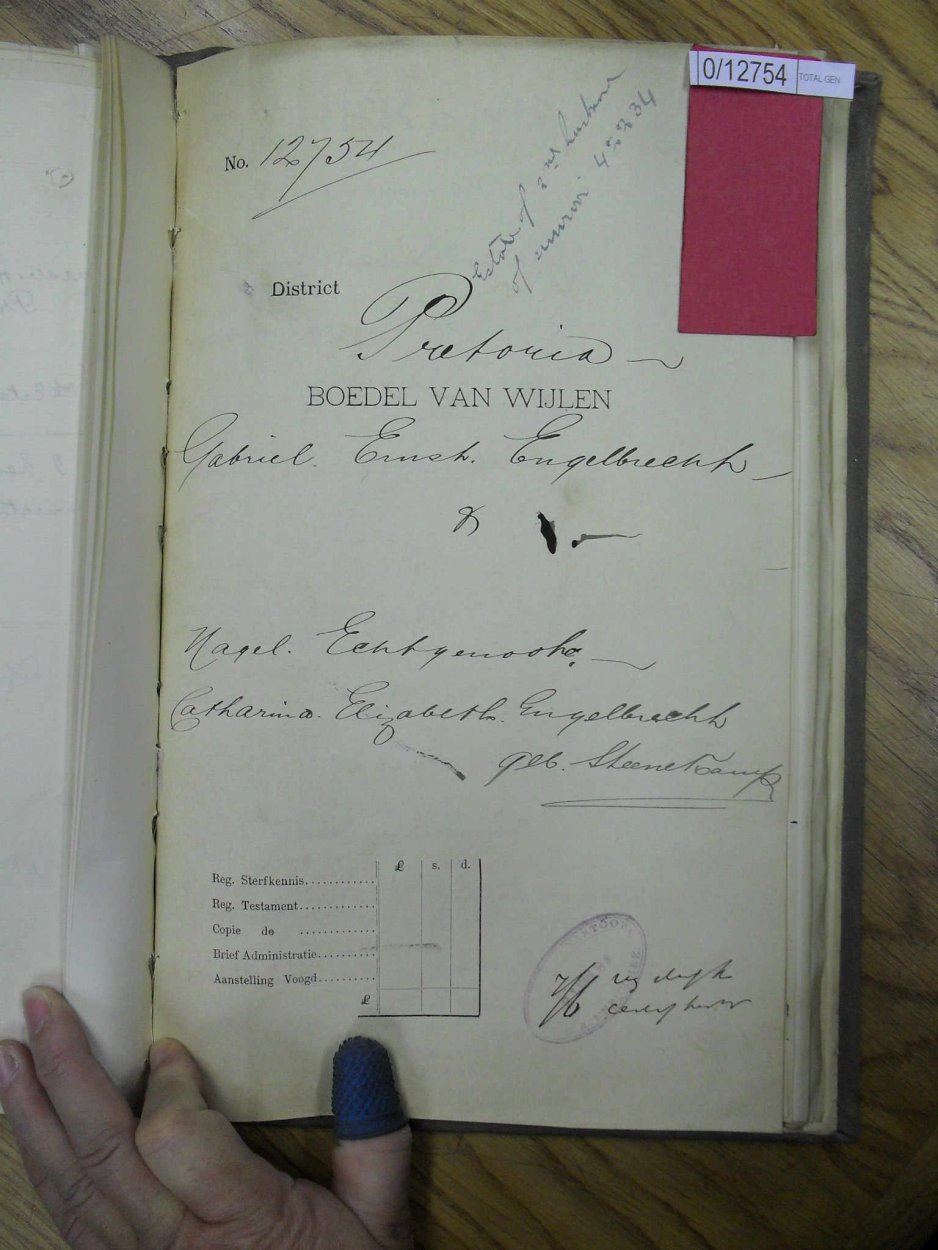 0/12754 TOTAL GEN
No. 12754
Estate of 2nd husband
of survivor 34
District
Pretoria
BOEDEL VAN WIJLEN
Gabriel. Ernst. Engelbrecht
&
Nagel. Echtgenoote
Catharina. Elizabeth. Engelbrecht
geb. Steenekamp
£ s. d.
Reg. Sterfkennis
Reg. Testament
Copie do
Brief Administratie
Aanstelling Voogd
£
7/6